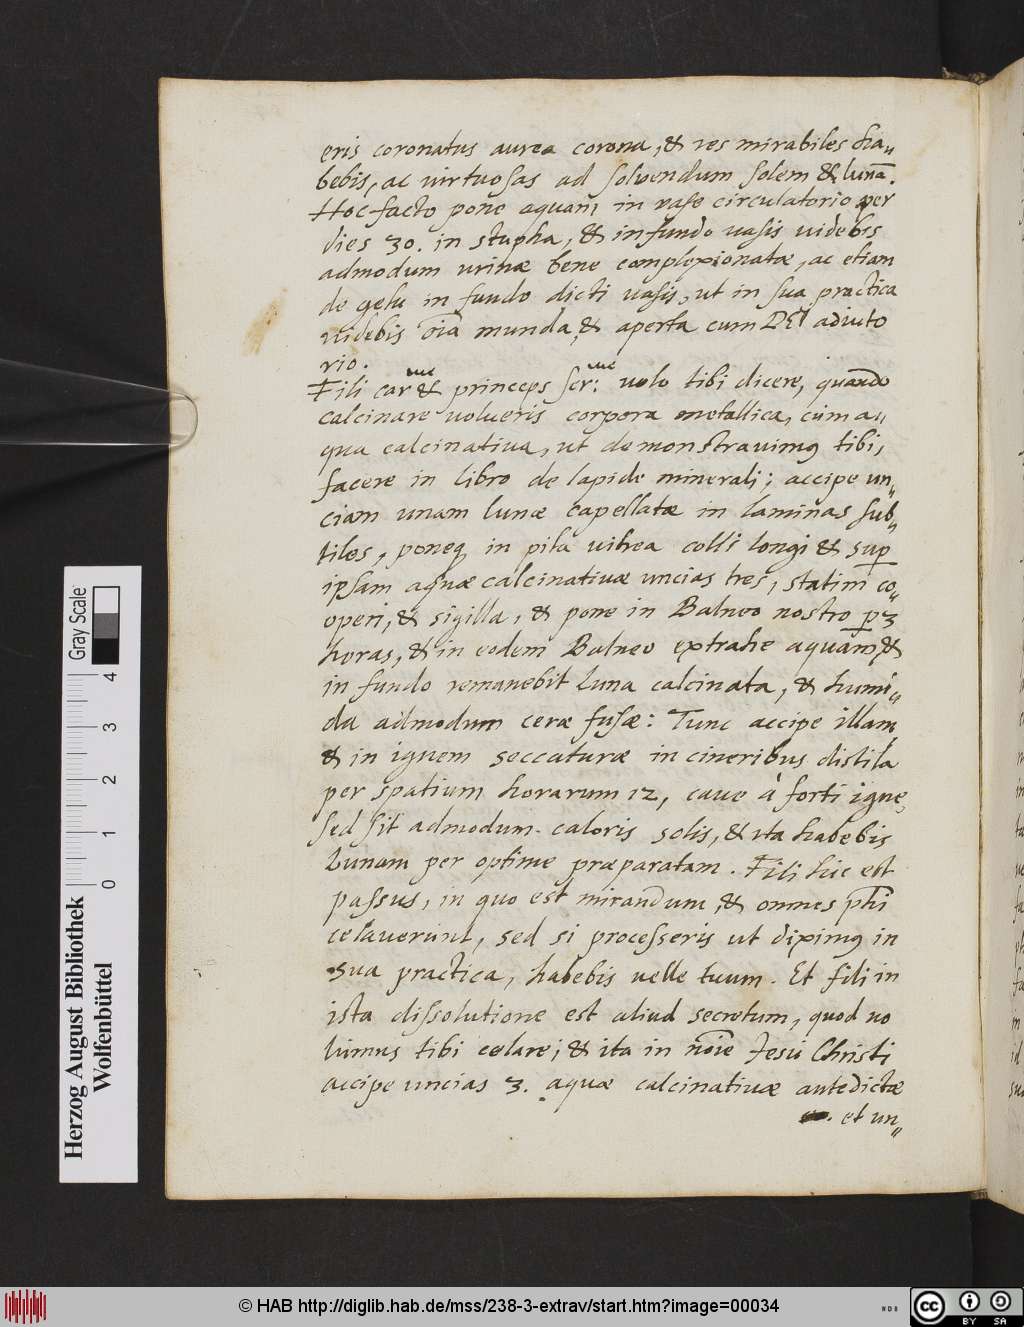 eris coronatus aurea corona, & res mirabiles ha„
bebis, ac virtuosas ad solvendum solem & lunā.
Hoc facto pone aquam in vase circulatorio per
dies 30. in stupha, & in fundo vasis videbis
admodum urinæ bene complexionatæ, ac etiam
de gesu in fundo dicti vasis, ut in sua practica
videbis oīa munda, & aperta cum DEI adiuto
rio.
Fili carme & princeps sermē: volo tibi dicere, quando
calcinare volueris corpora metallica, cum a„
qua calcinativa, ut demonstravimꝰ tibi,
facere in libro de lapide minerali; accipe un„
ciam unam lunæ capellatæ in laminas sub„
tiles, poneq; in pila vitrea colli longi & sup
ipsam aquæ calcinativæ uncias tres, statim co„
operi, & sigilla, & pone in Balneo nostro p 3
horas, & in eodem Balneo extrahe aquam, &
in fundo remanebit luna calcinata, & humi„
da admodum ceræ fusæ: Tunc accipe illam,
& in ignem seccaturæ in cineribus distila
per spatium horarum 12, cave à forti igne,
sed sit admodum caloris solis, & ita habebis
Lunam per optime præparatam. Fili hic est
passus, in quo est mirandum, & omnes phi
celaverunt, sed si processeris ut diximꝰ in
sua practica, habebis velle tuum. Et fili in
ista dissolutione est aliud secretum, quod no
lumus tibi celare; & ita in nōīe Jesu Christi
accipe uncias 3. aquæ calcinativæ antedictæ
et un„
Herzog August Bibliothek
Wolfenbüttel
Gray Scale
0 1 2 3 4
© HAB http://diglib.hab.de/mss/238-3-extrav/start.htm?image=00034
cc BY SA